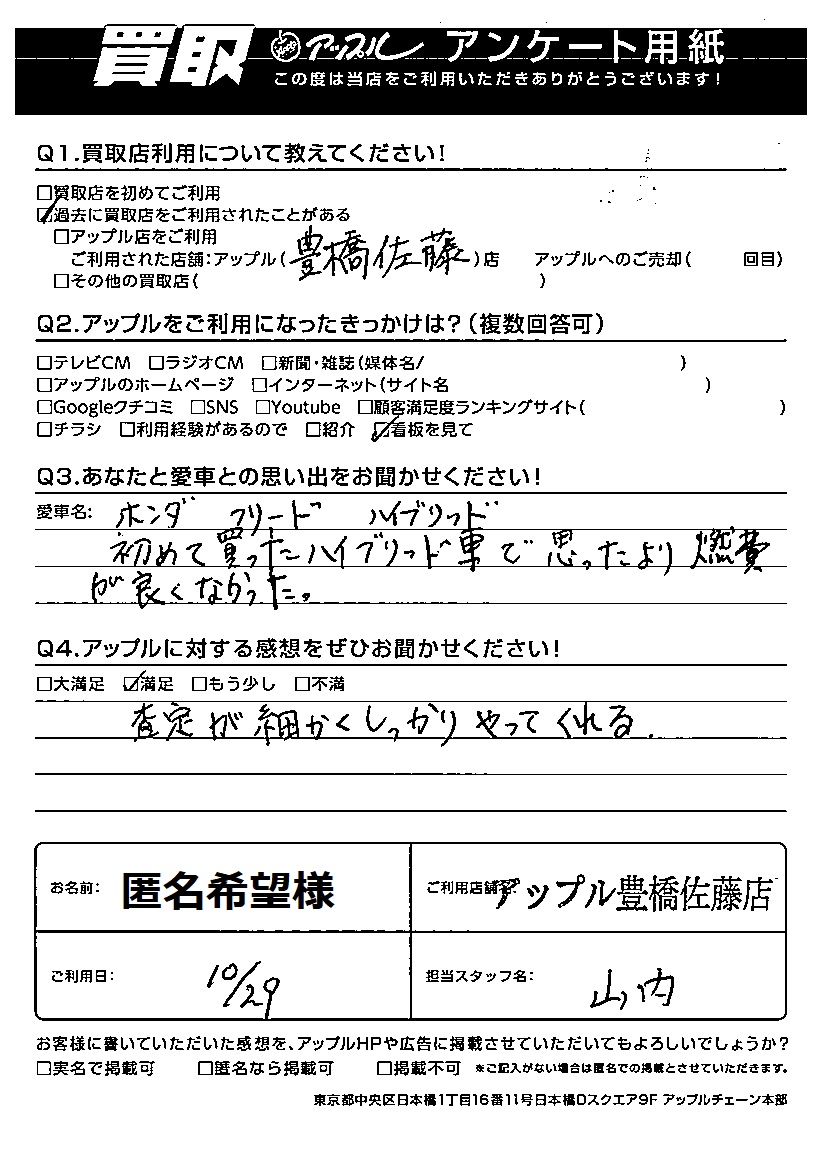 買取 アップル アンケート用紙
この度は当店をご利用いただきありがとうございます!
Q1.買取店利用について教えてください!
□買取店を初めてご利用
☑過去に買取店をご利用されたことがある
□アップル店をご利用
ご利用された店舗:アップル(豊橋佐藤)店 アップルへのご売却( 回目)
□その他の買取店( )
Q2.アップルをご利用になったきっかけは?(複数回答可)
□テレビCM □ラジオCM □新聞・雑誌(媒体名/ )
□アップルのホームページ □インターネット(サイト名 )
□Googleクチコミ □SNS □Youtube □顧客満足度ランキングサイト( )
□チラシ □利用経験があるので □紹介 ☑看板を見て
Q3.あなたと愛車との思い出をお聞かせください!
愛車名: ホンダ フリード ハイブリッド
初めて買ったハイブリッド車で思ったより燃費
が良くなかった。
Q4.アップルに対する感想をぜひお聞かせください!
□大満足 ☑満足 □もう少し □不満
査定が細かくしっかりやってくれる.
お名前: 匿名希望様 ご利用店舗名: アップル豊橋佐藤店
ご利用日: 10/29 担当スタッフ名: 山内
お客様に書いていただいた感想を、アップルHPや広告に掲載させていただいてもよろしいでしょうか?
□実名で掲載可 □匿名なら掲載可 □掲載不可 ※ご記入がない場合は匿名での掲載とさせていただきます。
東京都中央区日本橋1丁目16番11号日本橋Dスクエア9F アップルチェーン本部